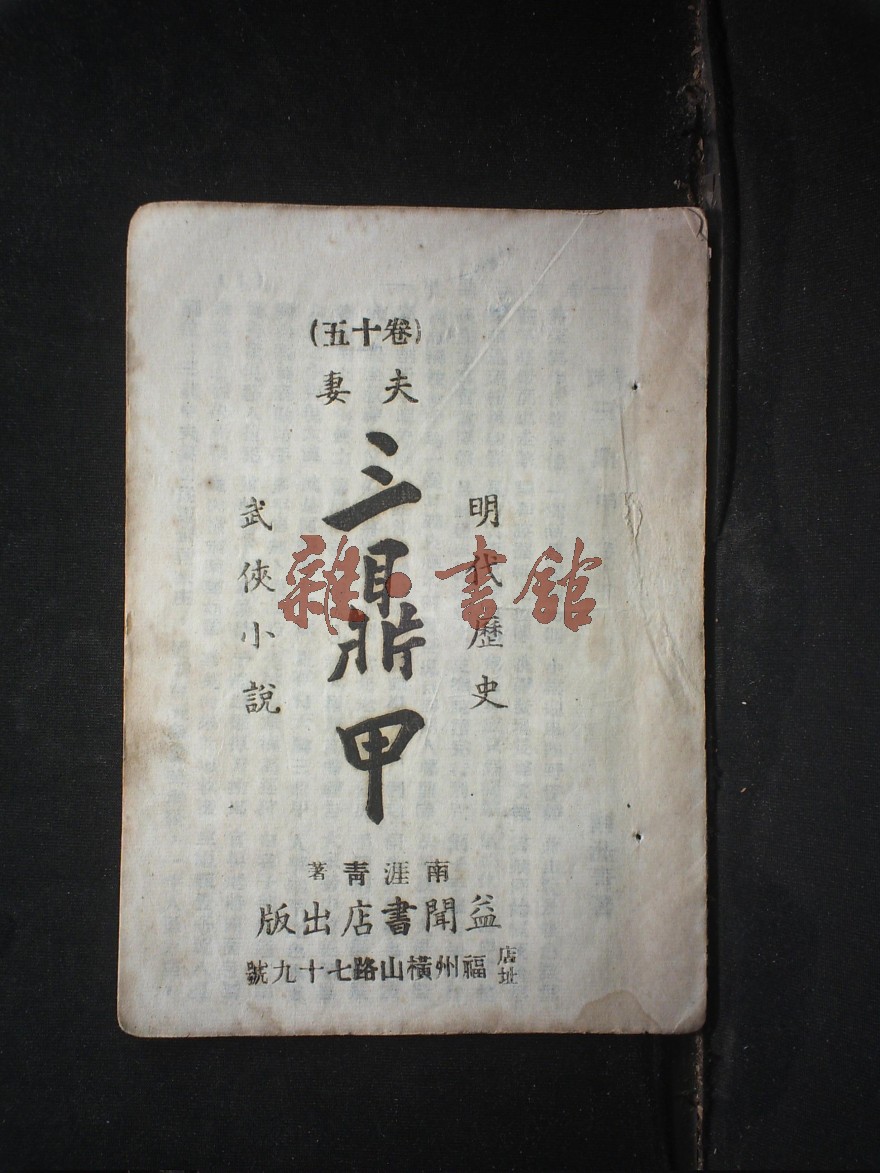 (卷十五)
夫妻
三鼎甲
明代歷史
武俠小說
南涯青著
益聞書店出版
店址 福州橫山路七十九號
雜·書館